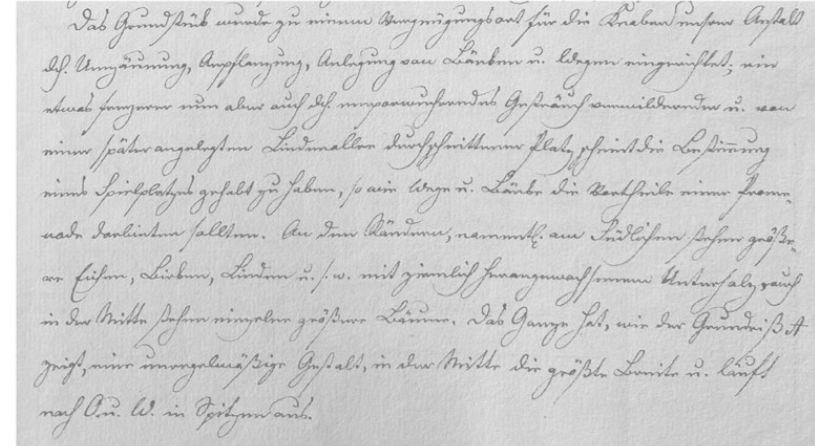 Das Grundstück wurde zu einem Vergnügungsort für die Knaben unserer Anstalt
dch. Umzäunung, Anpflanzung, Anlegung von Lauben u. Wegen eingerichtet; ein
etwas freierer nun aber auch dch. emporwucherndes Gesträuch verwildernder u. von
einer später angelegten Lindenallee durchschnittener Platz scheint die Bestimmung
eines Spielplatzes gehabt zu haben, so wie Wege u. Lauben die Vortheile einer Prome-
nade darbieten sollten. An den Rändern, namentl. am südlichen stehen größe-
re Eichen, Birken, Linden u. s. w. mit ziemlich herangewachsenem Unterholz, auch
in der Mitte stehen einzelne größere Bäume. Das Ganze hat, wie der Grundriß A
zeigt, eine unregelmäßige Gestalt, in der Mitte die größte Breite u. läuft
nach O. u. W. in Spitzen aus.